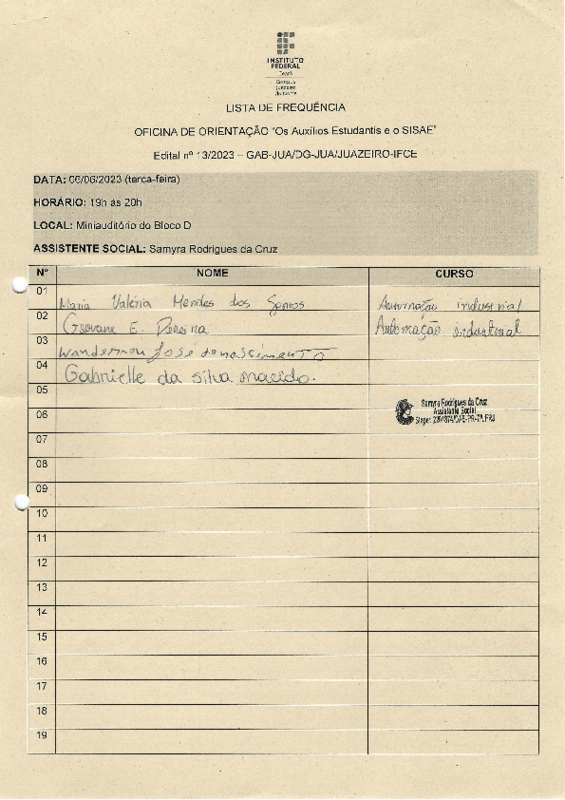 INSTITUTO
FEDERAL
Ceará
Campus
Juazeiro
do Norte
LISTA DE FREQUÊNCIA
OFICINA DE ORIENTAÇÃO "Os Auxílios Estudantis e o SISAE"
Edital nº 13/2023 – GAB-JUA/DG-JUA/JUAZEIRO-IFCE
DATA: 06/06/2023 (terça-feira)
HORÁRIO: 19h às 20h
LOCAL: Miniauditório do Bloco D
ASSISTENTE SOCIAL: Samyra Rodrigues da Cruz
Nº NOME CURSO
01 Maria Valéria Mendes dos Santos Automação industrial
02 Geovane E. Pereira Automação industrial
03 Wandernon José do nascimento
04 Gabrielle da silva macido.
05
Samyra Rodrigues da Cruz
Assistente Social
06
07
08
09
10
11
12
13
14
15
16
17
18
19